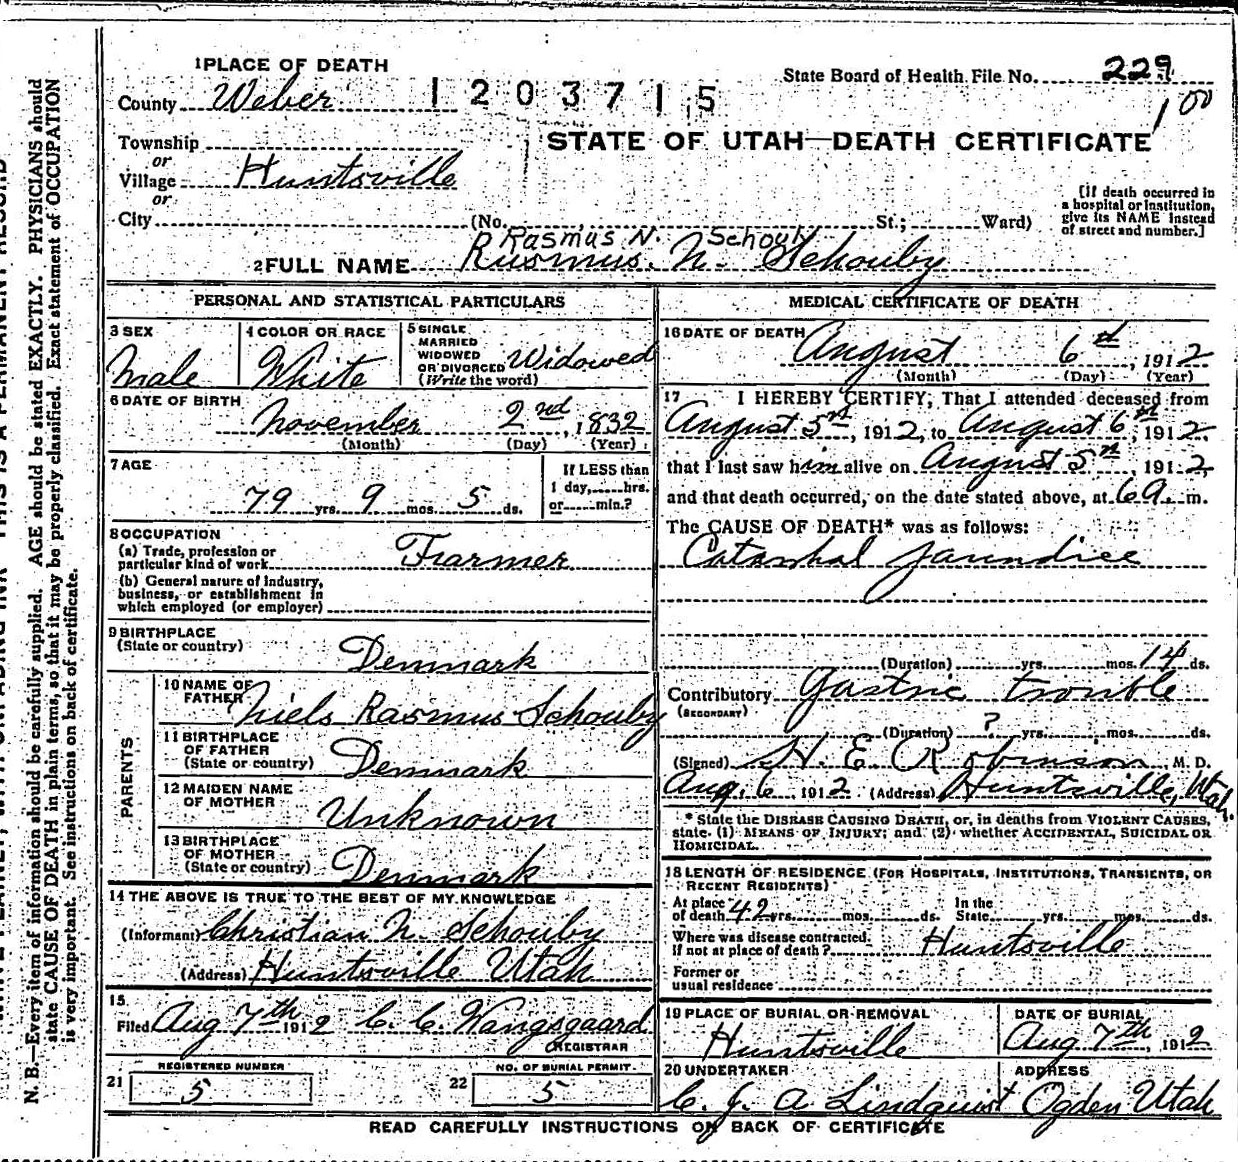 1 PLACE OF DEATH
State Board of Health File No. 229
County Weber
1203715
1 00
STATE OF UTAH—DEATH CERTIFICATE
Township
or
Village Huntsville
or
City (No. St.; Ward)
[If death occurred in
a hospital or institution,
give its NAME instead
of street and number.]
Rasmus N. Schouby
2 FULL NAME Rusmus. N. Schouby
PERSONAL AND STATISTICAL PARTICULARS
3 SEX
Male
4 COLOR OR RACE
White
5 SINGLE
MARRIED
WIDOWED
OR DIVORCED Widowed
(Write the word)
6 DATE OF BIRTH
November 2nd, 1832
(Month) (Day) (Year)
7 AGE
79 yrs. 9 mos. 5 ds.
If LESS than
1 day, hrs.
or min.?
8 OCCUPATION
(a) Trade, profession or
particular kind of work Farmer
(b) General nature of industry,
business, or establishment in
which employed (or employer)
9 BIRTHPLACE
(State or country)
Denmark
PARENTS
10 NAME OF
FATHER Niels Rasmus Schouby
11 BIRTHPLACE
OF FATHER
(State or country) Denmark
12 MAIDEN NAME
OF MOTHER
Unknown
13 BIRTHPLACE
OF MOTHER
(State or country) Denmark
14 THE ABOVE IS TRUE TO THE BEST OF MY KNOWLEDGE
(Informant) Christian N. Schouby
(Address) Huntsville Utah
15
Filed Aug 7th 1912 C. C. Wangsgaard
REGISTRAR
REGISTERED NUMBER
21 5
NO. OF BURIAL PERMIT
22 5
MEDICAL CERTIFICATE OF DEATH
16 DATE OF DEATH
August 6th, 1912
(Month) (Day) (Year)
17 I HEREBY CERTIFY, That I attended deceased from
August 5th, 1912, to August 6th, 1912,
that I last saw him alive on August 5th, 1912,
and that death occurred, on the date stated above, at 6 a. m.
The CAUSE OF DEATH* was as follows:
Catarrhal jaundice
(Duration) yrs. mos. 14 ds.
Contributory Gastric trouble
(SECONDARY)
(Duration) ? yrs. mos. ds.
(Signed) H. E. Robinson, M. D.
Aug. 6, 1912 (Address) Huntsville, Utah.
* State the DISEASE CAUSING DEATH, or, in deaths from VIOLENT CAUSES,
state (1) MEANS OF INJURY; and (2) whether ACCIDENTAL, SUICIDAL OR
HOMICIDAL.
18 LENGTH OF RESIDENCE (FOR HOSPITALS, INSTITUTIONS, TRANSIENTS, OR
RECENT RESIDENTS)
At place
of death 42 yrs. mos. ds.
In the
State yrs. mos. ds.
Where was disease contracted,
if not at place of death? Huntsville
Former or
usual residence
19 PLACE OF BURIAL OR REMOVAL
Huntsville
DATE OF BURIAL
Aug 7th, 1912
20 UNDERTAKER
C. J. A. Lindquist
ADDRESS
Ogden Utah
READ CAREFULLY INSTRUCTIONS ON BACK OF CERTIFICATE
N. B.—Every item of information should be carefully supplied. AGE should be stated EXACTLY. PHYSICIANS should
state CAUSE OF DEATH in plain terms, so that it may be properly classified. Exact statement of OCCUPATION
is very important. See instructions on back of certificate.